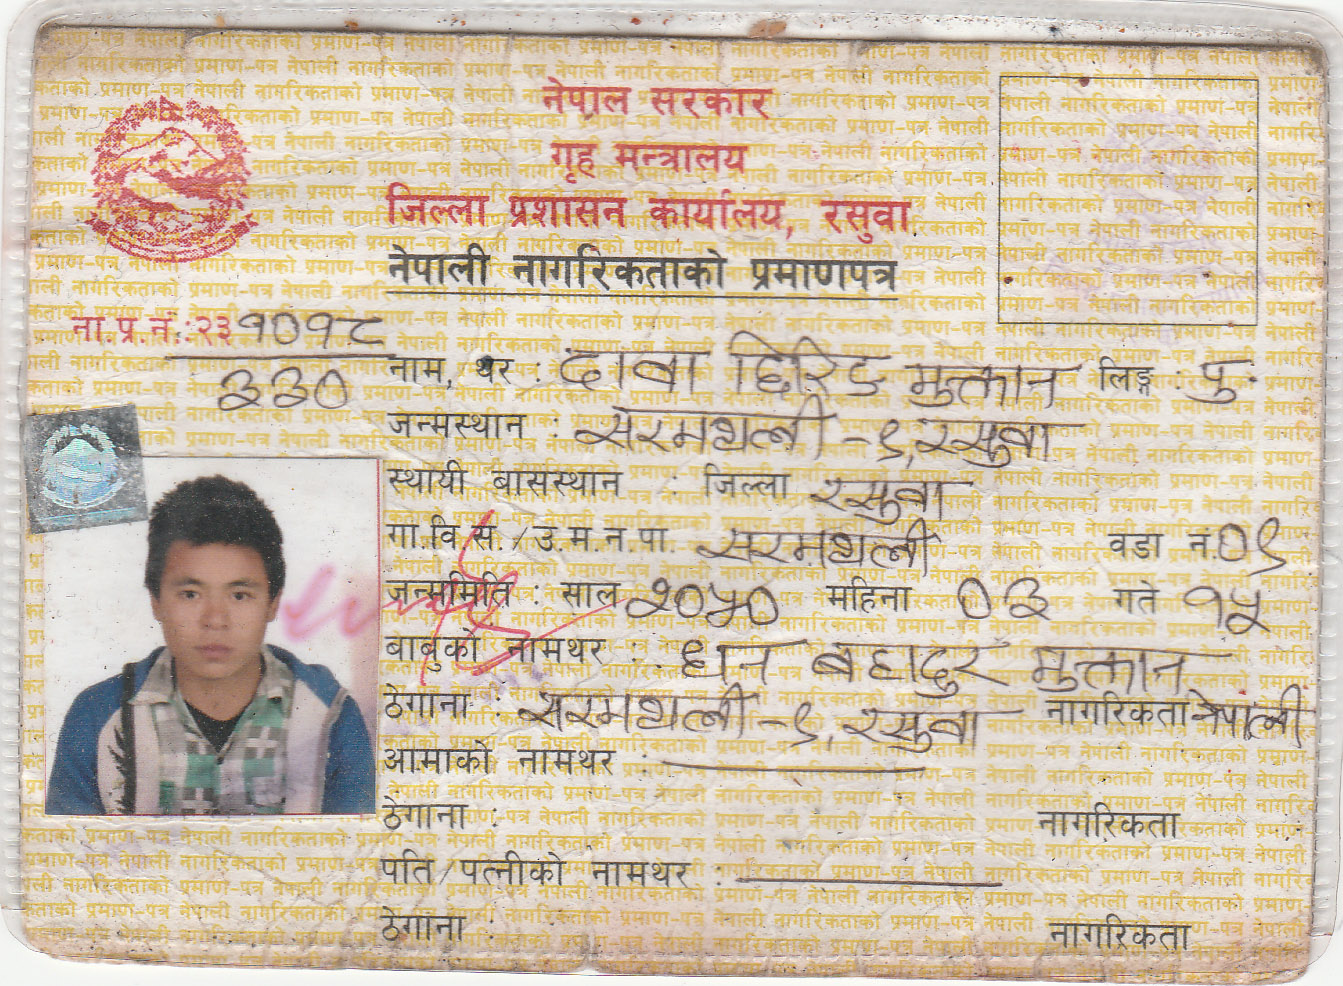 नेपाल सरकार
गृह मन्त्रालय
जिल्ला प्रशासन कार्यालय, रसुवा
नेपाली नागरिकताको प्रमाणपत्र
ना.प्र.नं.:२३१०१८
३३०
नाम, थर : दावा छिरिङ मुक्तान लिङ्ग : पु.
जन्मस्थान : सरमथली -९, रसुवा
स्थायी बासस्थान : जिल्ला रसुवा
गा.वि.स./उ.म.न.पा. सरमथली वडा नं.०९
जन्ममिति : साल २०५० महिना ०३ गते १५
बाबुको नामथर : धन बहादुर मुक्तान
ठेगाना : सरमथली -९, रसुवा नागरिकता नेपाली
आमाको नामथर :
ठेगाना : नागरिकता
पति/पत्नीको नामथर :
ठेगाना : नागरिकता